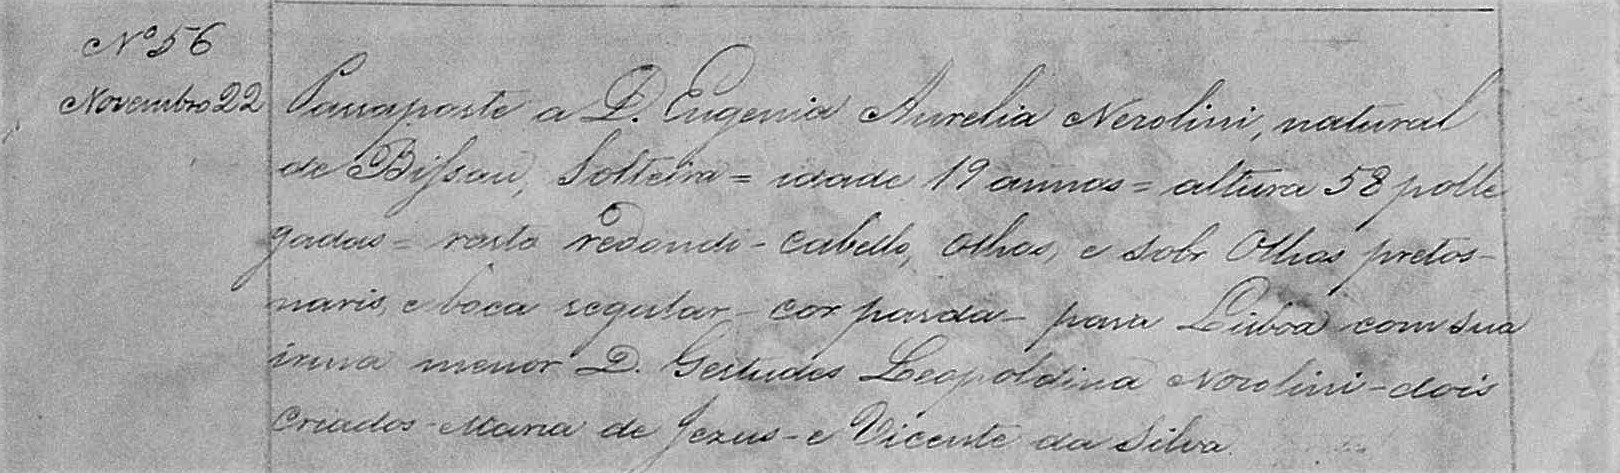 Nº 56
Novembro 22
Passaporte a D. Eugenia Aurelia Nozolini, natural
de Bissau, Solteira = idade 19 annos = altura 58 polle
gadas = rosto redondo - cabello, olhos, e sobr'olhos pretos -
naris, e boca regular - cor parda - para Lisboa com sua
irmã menor D. Gertudes Leopoldina Nozolini - dois
criados - Maria de Jezus - e Vicente da Silva.